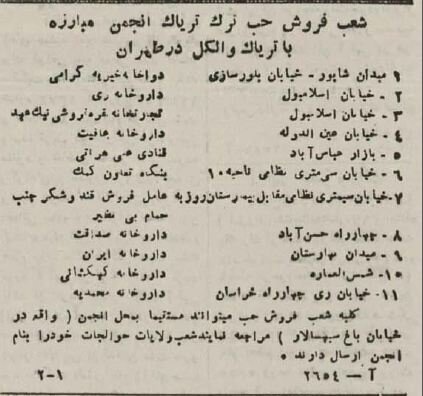 شعب فروش حب ترک تریاک انجمن مبارزه
با تریاک والکل درطهران
۱ میدان شاپور - خیابان بلورسازی دواخانه خیریه گرامی
۲ - خیابان اسلامبول داروخانه ری
۳ - خیابان اسلامبول تجارتخانه نقره فروشی نیک عهد
۴ - خیابان عین الدوله داروخانه عافیت
۵ - بازار عباس آباد قنادی علی هراتی
۶ - خیابان سی متری نظامی ناحیه ۱۰ بنگاه تعاون کمک
۷ - خیابان سیمتری نظامی مقابل بیمارستان روزبه عامل فروش قند وشکر جنب
حمام بی نظیر
۸ - چهارراه حسن آباد داروخانه صداقت
۹ - میدان بهارستان داروخانه ایران
۱۰ - شمس العماره داروخانه کهکشانی
۱۱ - خیابان ری چهارراه خراسان داروخانه محمدیه
کلیه شعب فروش حب میتوانند مستقیما بمحل انجمن ( واقع در
خیابان باغ سپهسالار ) مراجعه نمایند شعب ولایات حوالجات خودرا بنام
انجمن ارسال دارند ۰
آ — ۲۶۵۴ ۲-۱